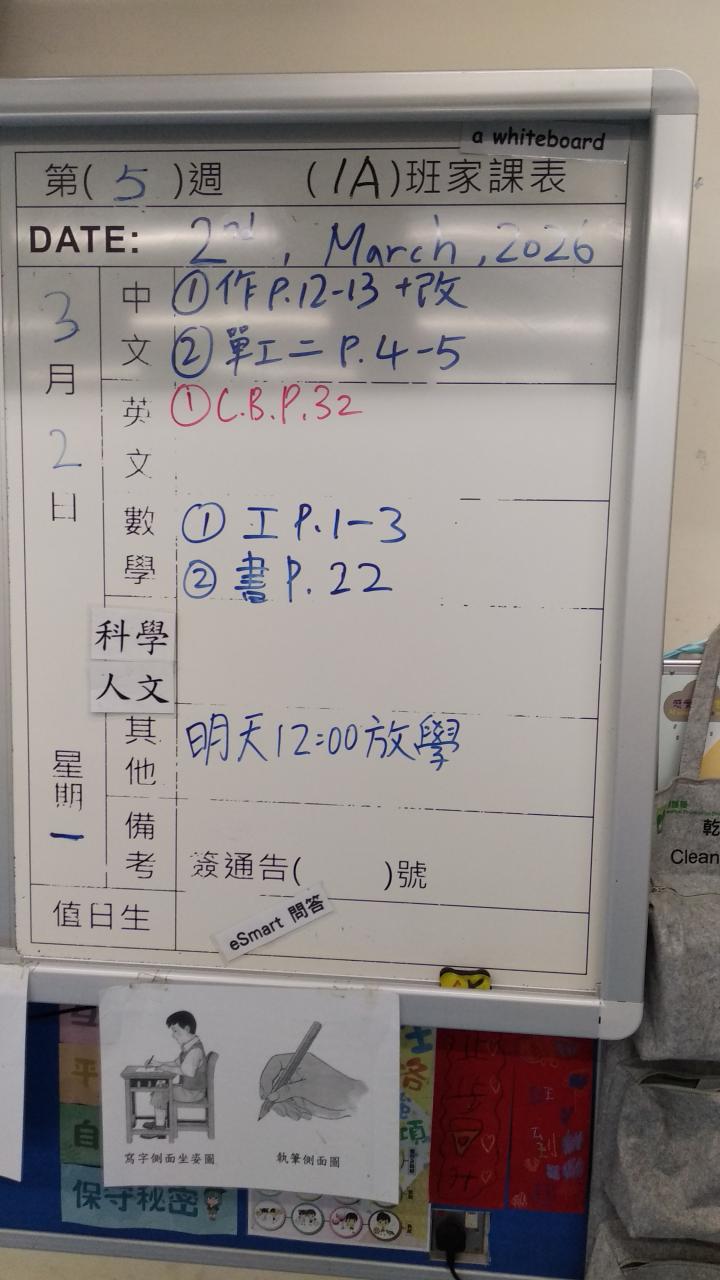 a whiteboard
第( 5 )週 (1A)班家課表
DATE: 2nd, March, 2026
3月2日 星期一
中文 ①作P.12-13+改
②單工二 P.4-5
英文 ①C.B.P.32
數學 ① 工 P.1-3
② 書 P.22
科學
人文
其他 明天12:00放學
備考 簽通告( )號
值日生
eSmart 問答
寫字側面坐姿圖 執筆側面圖
保守秘密
乾
Clean